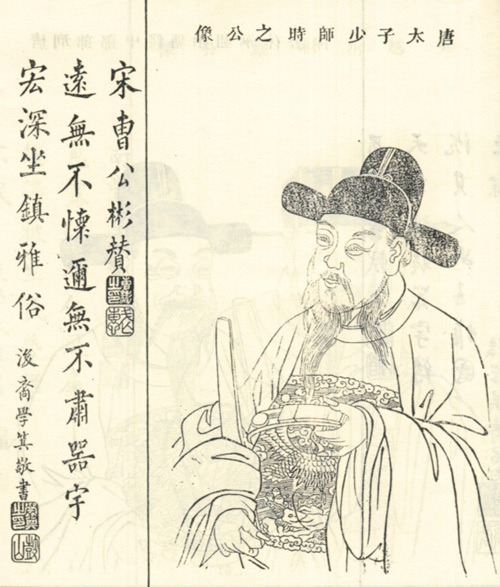 唐太子少師時之公像
宋曹公彬賛
遠無不懐邇無不肅器宇
宏深坐鎮雅俗
後裔學其敬書